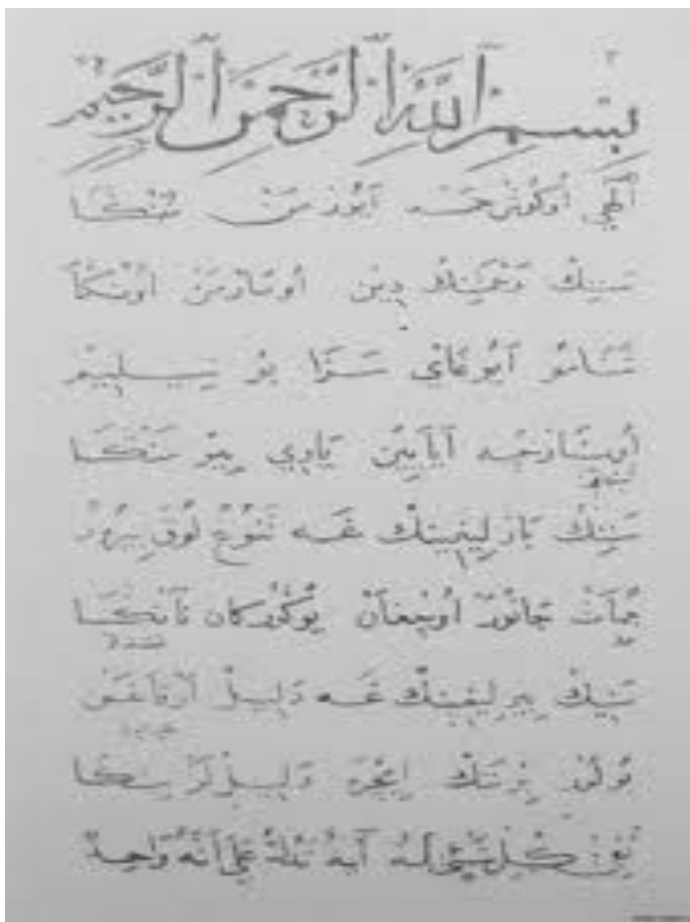 بِسْمِ اللّٰهِ الرَّحْمٰنِ الرَّحِيمِ
الٰهي اوكوش حمد ايور من سنكا
سنينك رحمتينك دين اومارمن اونكا
ثنا مو ايوغاي سزا بو تيليم
اونارجه ايايين ياري بير منكا
سنينك بارليغينك غه تنوغ لوق بيرور
جماد جانور اوجغان يوكوركان نانكا
سنينك بيرليغينك غه دليل ارقاغان
بولور بر ننك ايجره دليللر مينكا
ففي كل شيء له آية تدل على أنه واحد